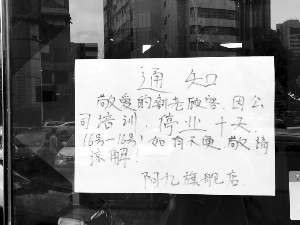 通知
敬爱的新老顾客、因公
司培训 停业十天
(6号—16号)如有不便 敬请
谅解!
阿九旗舰店.